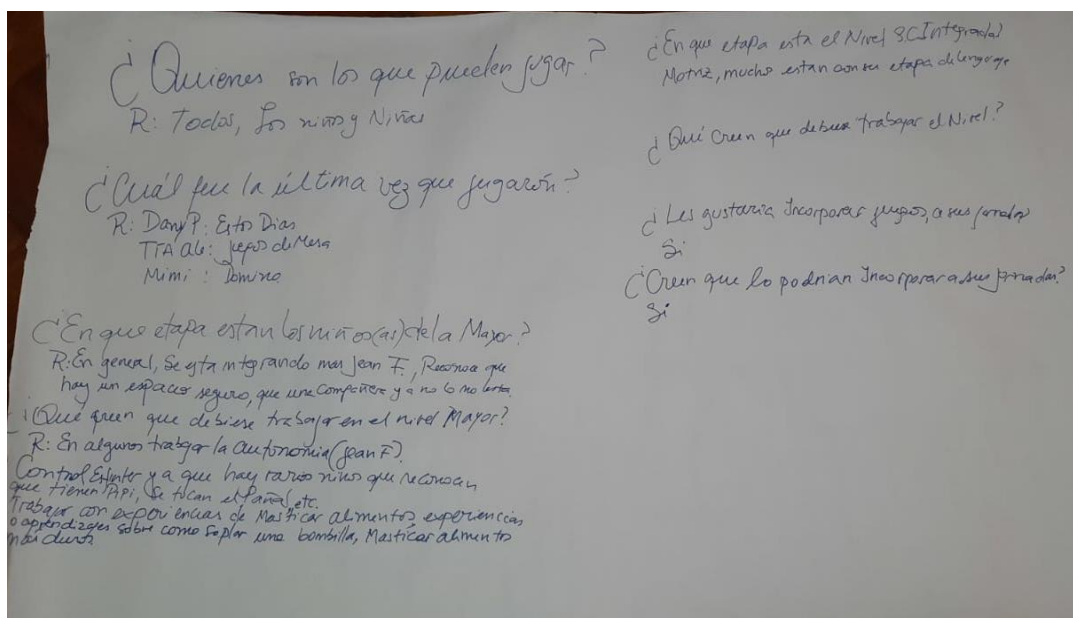 ¿Quienes son los que pueden jugar?
R: Todos, Los niños y Niñas
¿Cuál fue la última vez que jugarón?
R: Dany P: Estos Dias
TTA ale: juegos de Mesa
Mimi : Domino
¿En que etapa estan los niños(as) de la Mayor?
R: En general, Se esta integrando mas Jean F., Reconoce que
hay un espacio seguro, que una compañera ya no lo
¿Qué creen que debiese trabajar en el nivel Mayor?
R: En algunos trabajar la autonomia (Jean F).
Control Esfinter ya que hay varios niños que reconocen
que tienen Pipi, Se tocan el Pañal, etc.
Trabajar con experiencias de Masticar alimentos, experiencias
o aprendizajes sobre como soplar una bombilla, Masticar alimento
mas duros
¿En que etapa esta el Nivel SC Integrada?
Motriz, mucho estan con su etapa de lenguaje
¿Qué creen que debiese trabajar el Nivel?
¿Les gustaria Incorporar juegos, a sus jornadas?
Si
¿Creen que lo podrian Incorporar a sus jornadas?
Si